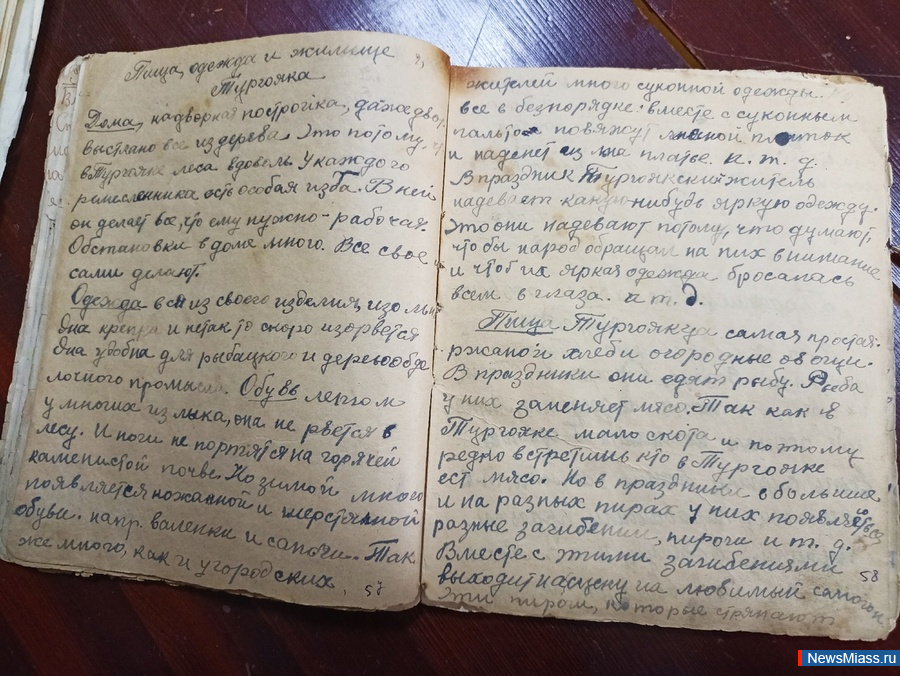 Пища, одежда и жилище
Тургояка
Дома, надворная постройка, даже двор
выстлано все из дерева. Это потому, что
в Тургояке леса вдоволь. У каждого
ремесленника есть особая изба. В ней
он делает все, что ему нужно - рабочая.
Обстановки в доме много. Все свое
сами делают.
Одежда вся из своего изделия, из
Она крепка и не так то скоро изорвется
Она удобна для рыбацкого и деревообде
лочного промысла. Обувь летом
у многих из лыка, она не рвется в
лесу. И ноги не портятся на горячей
каменистой почве. Но зимой много
появляется кожанной и шерстянной
обуви. напр. валенки и сапоги. Так
же много, как и у городских
57
жителей много суконной одежды.
все в безпорядке: вместе с суконным
пальто повяжут платок
и наденет из льна платье. и. т. д.
В праздник Тургоякский житель
надевает какую-нибудь яркую одежду.
Это они надевают потому, что думают,
что бы народ обращал на них внимание
и чтоб их яркая одежда бросалась
всем в глаза. и т. д.
Пища Тургояка самая простая:
ржаной хлеб и огородные овощи.
В праздники они едят рыбу. Рыба
у них заменяет мясо. Так как в
Тургояке мало скота и потому
редко встретишь кто в Тургояке
ест мясо. Но в праздники большие
и на разных пирах у них появляются
разные загибении, пироги и т. д.
Вместе с этими загибениями
выходит на сцену их любимый самогон
Эти пироги, которые стряпают
58
NewsMiass.ru